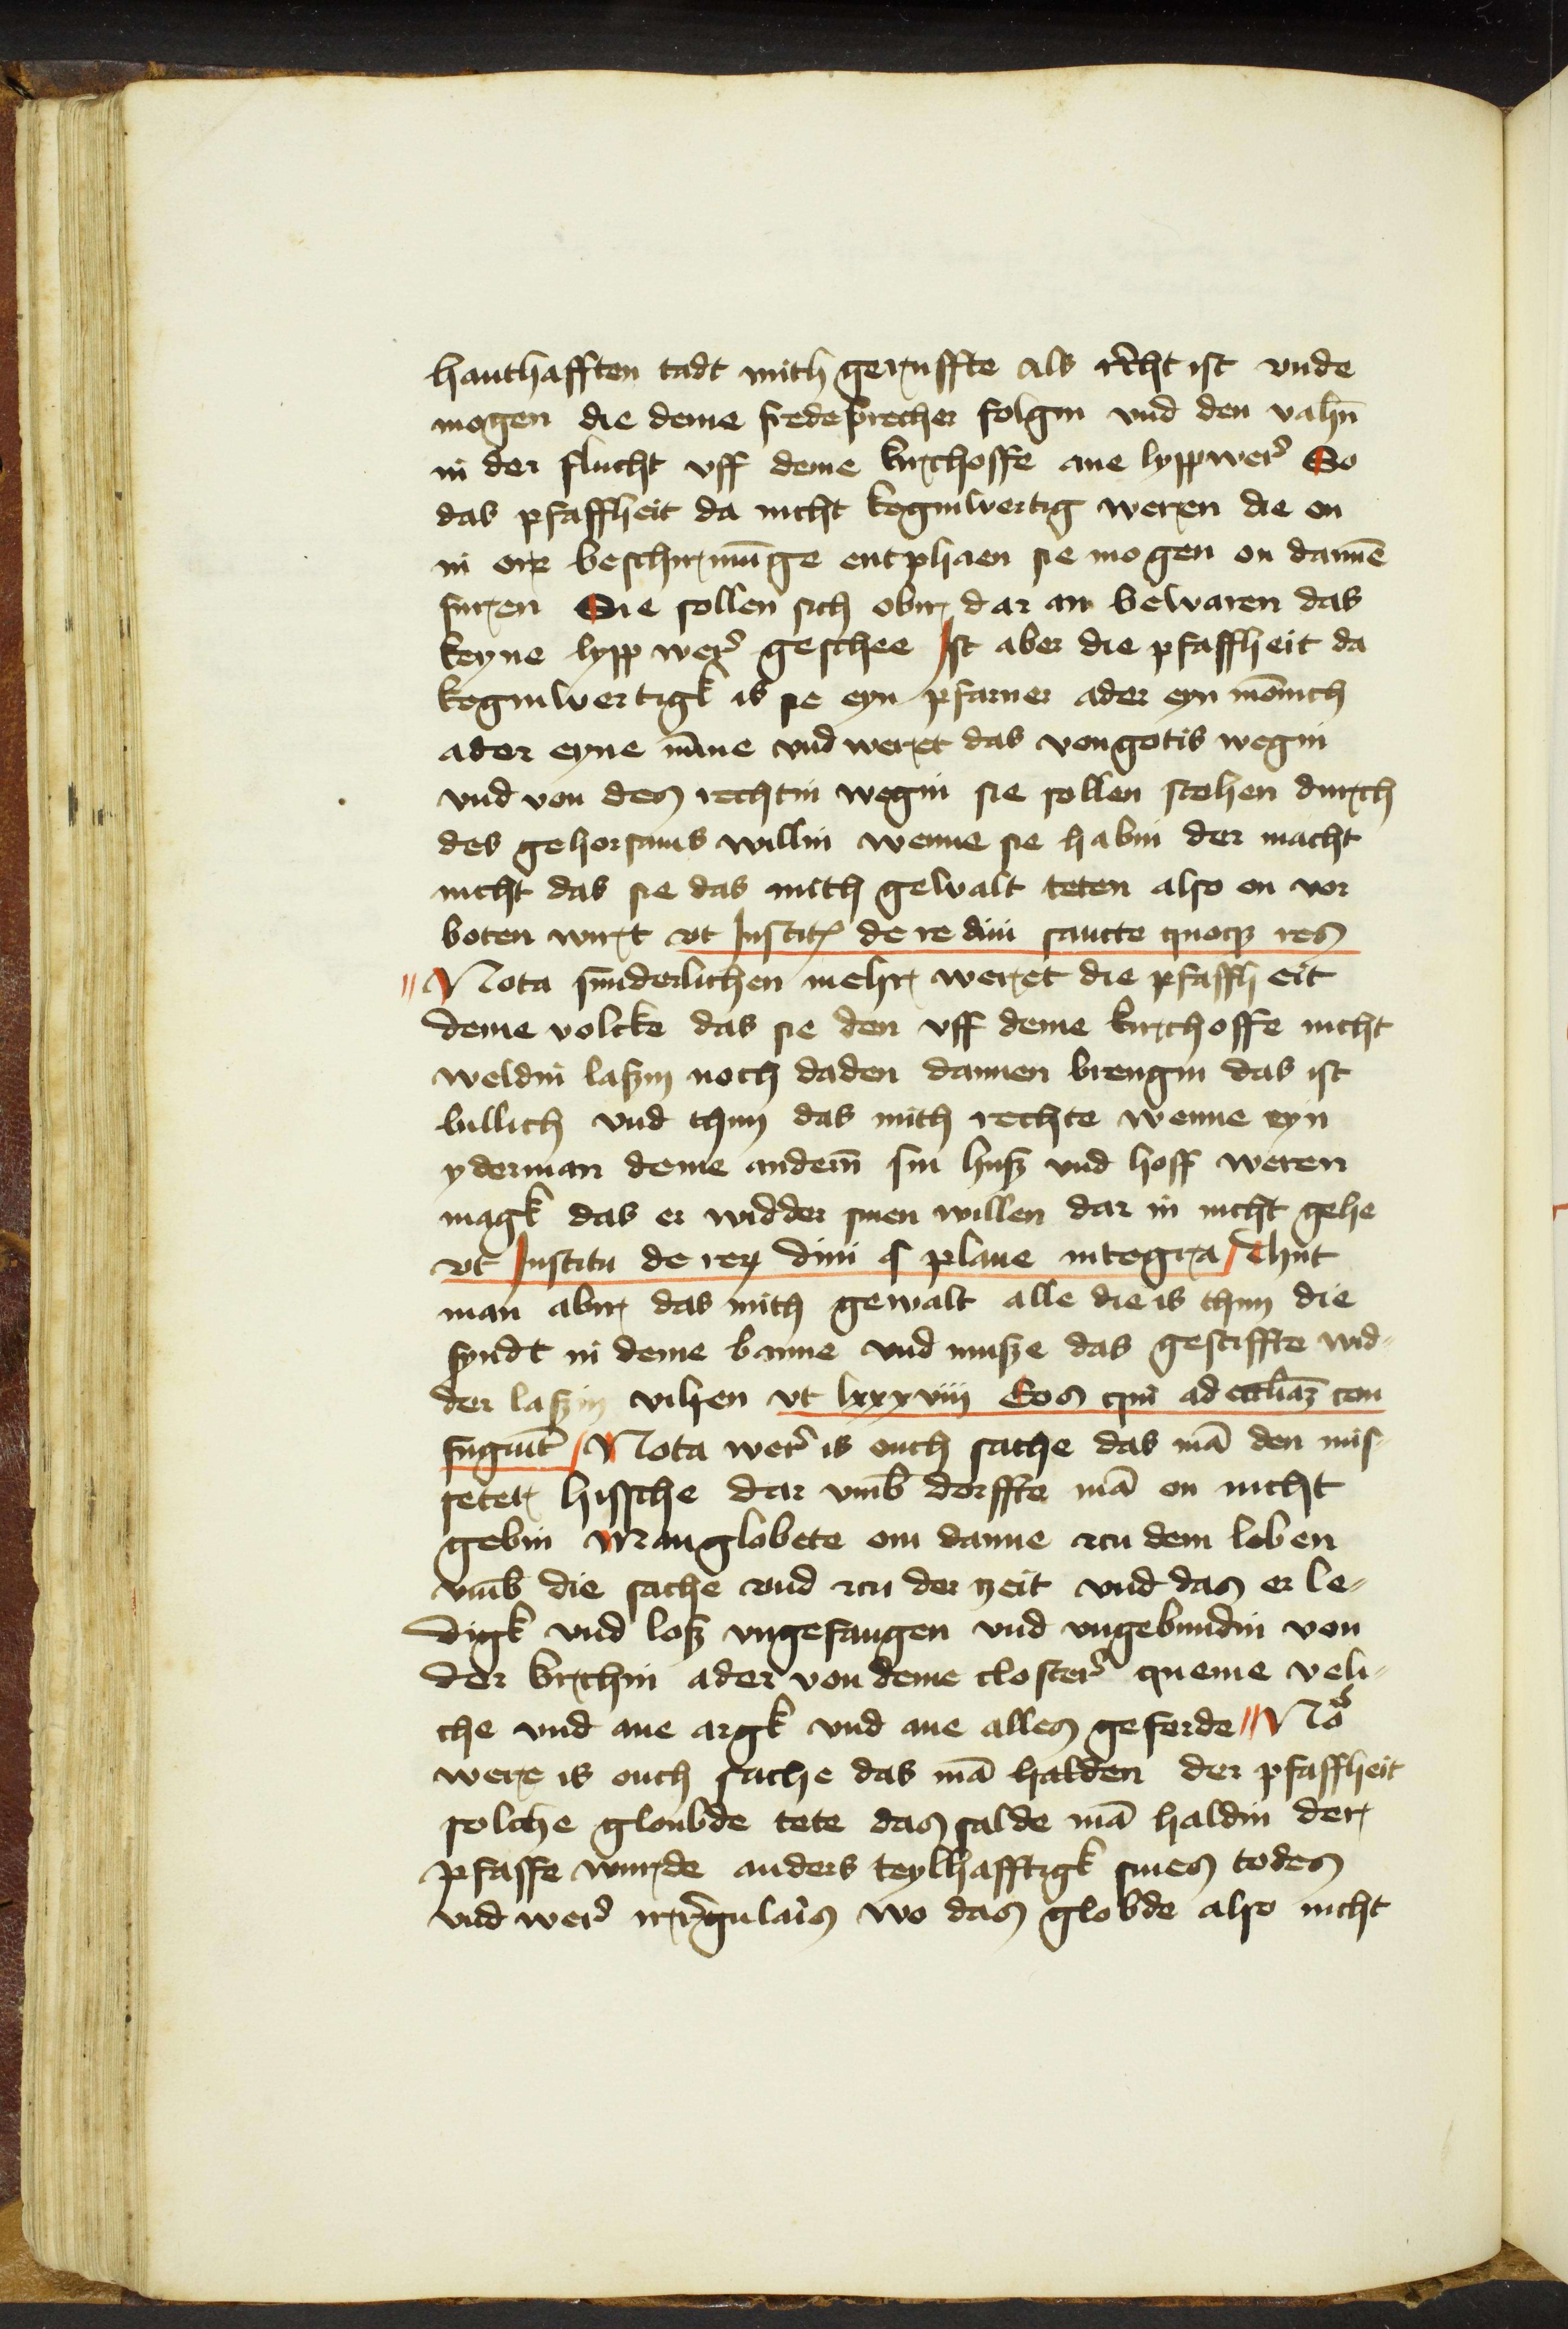 hanthafften tadt mith geruffte als recht ist vnde
mogen die deme fredebrecher folgin vnd den vahn̄
in der flucht vff deme kirchoffe ane lyppwer̉ So
das pfaffheit da nicht keginwertig weren die en
in ore beschirmūge entphaen sie mogen on dannē
furen Sie sollen sich obir dar an bewaren das
keyne lypp wer̉ geschee Ist aber die pfaffheit da
keginwertigk is sie eyn pfarner ader eyn mōnich
ader eyne nūne vnd weret das von gotis wegin
vnd von des rechtin wegin sie sollen stehen durch
des gehorsams willin wenne sie habin der macht
nicht das sie das mith gewalt teten also en vor
boten wirt vt Instit̉ de re diui sancte quoqꝫ res
Nota sunderlichen mehr weret die pfaffheit
deme volcke das sie den vff deme kirchoffe nicht
weldin laßin noch daden dannen brengin das ist
billich vnd thun das mith rechte wenne eyn
yderman deme andern̄ sin huß vnd hoff weren
magk das er widder sinen willen dar in nicht gehe
vt Institu de reꝝ diui § plane integra Thut
man abir das mith gewalt alle die is thun die
syndt in deme banne vnd musze das gestiffte wid-
der laszin wihen vt lxxxviij Eos qui ad eccl̄iaꝫ con
fugiūt Nota wer̉ is ouch sache das mā den mis-
teter hissche dar vmb dorffte mā en nicht
gebin Man globete om danne czu dem leben
vmb die sache vnd czu der zeit vnd das er le-
digk vnd loß vngefangen vnd vngebundin von
der kirchin ader von deme closter̉ queme veli-
che vnd ane argk vnd ane alles geferde No
were is ouch sache das mā halden der pfaffheit
solche gloubde tete das salde mā haldin der
pfaffe wurde anders teylhafftigk sines todes
vnd wer̉ irregularis wo das globde also nicht